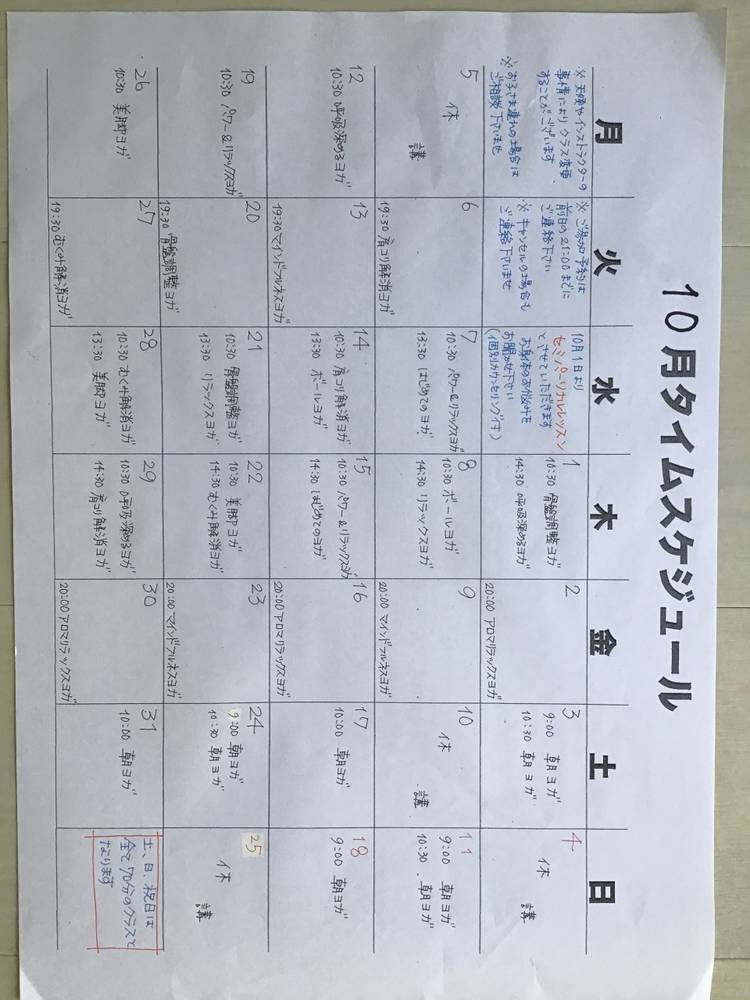 10月タイムスケジュール
月 火 水 木 金 土 日
※天候やインストラクターの
事情によりクラス変更
することがございます
※お子さま連れの場合は
ご相談下さいませ
※ご参加予約は
前日の21:00までに
ご連絡下さい
※キャンセルの場合も
ご連絡下さいませ
10月1日より
セミパーソナルレッスン
とさせていただきます
お身体のお悩みを
お聞かせ下さい
(個別カウンセリング付)
1
10:30 骨盤調整ヨガ
14:30 呼吸深めるヨガ
2
20:00 アロマリラックスヨガ
3
9:00 朝ヨガ
10:30 朝ヨガ
4
休
講
5
休
講
6
19:30 肩コリ解消ヨガ
7
10:30 パワー&リラックスヨガ
13:30 はじめてのヨガ
8
10:30 ボールヨガ
14:30 リラックスヨガ
9
20:00 マインドフルネスヨガ
10
休
講
11
9:00 朝ヨガ
10:30 朝ヨガ
12
10:30 呼吸深めるヨガ
13
19:30 マインドフルネスヨガ
14
10:30 肩コリ解消ヨガ
13:30 ボールヨガ
15
10:30 パワー&リラックスヨガ
14:30 はじめてのヨガ
16
20:00 アロマリラックスヨガ
17
10:00 朝ヨガ
18
9:00 朝ヨガ
19
10:30 パワー&リラックスヨガ
20
19:30 骨盤調整ヨガ
21
10:30 骨盤調整ヨガ
13:30 リラックスヨガ
22
10:30 美脚ヨガ
14:30 むくみ解消ヨガ
23
20:00 マインドフルネスヨガ
24
9:00 朝ヨガ
10:30 朝ヨガ
25
休
講
26
10:30 美脚ヨガ
27
19:30 むくみ解消ヨガ
28
10:30 むくみ解消ヨガ
13:30 美脚ヨガ
29
10:30 呼吸深めるヨガ
14:30 肩コリ解消ヨガ
30
20:00 アロマリラックスヨガ
31
10:00 朝ヨガ
土、日、祝日は
全て70分のクラスと
なります